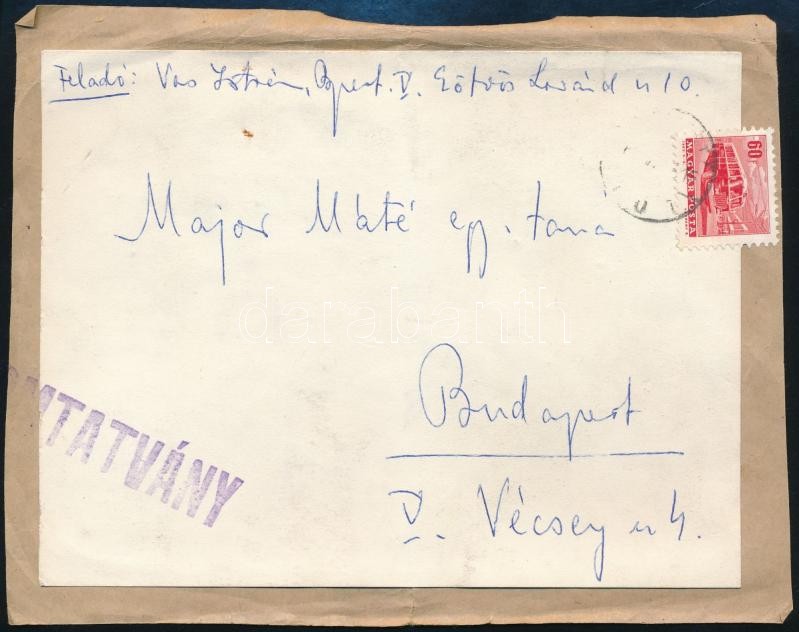 Feladó: Vas István, Bpest. V. Eötvös Loránd u 10.
60
MAGYAR POSTA
Major Máté egy. tanár
darabanth
Budapest
MTATVÁNY
V. Vécsey u 4.